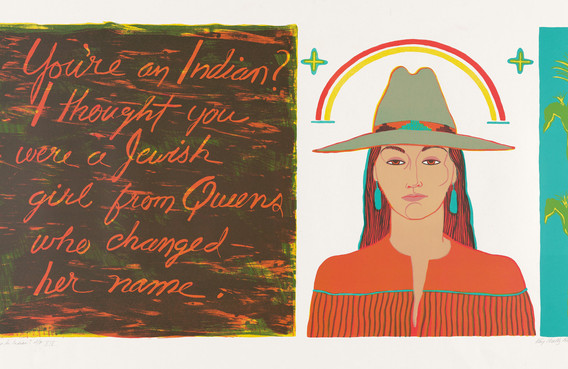 You're an Indian?
I thought you
were a Jewish
girl from Queens
who changed
her name.